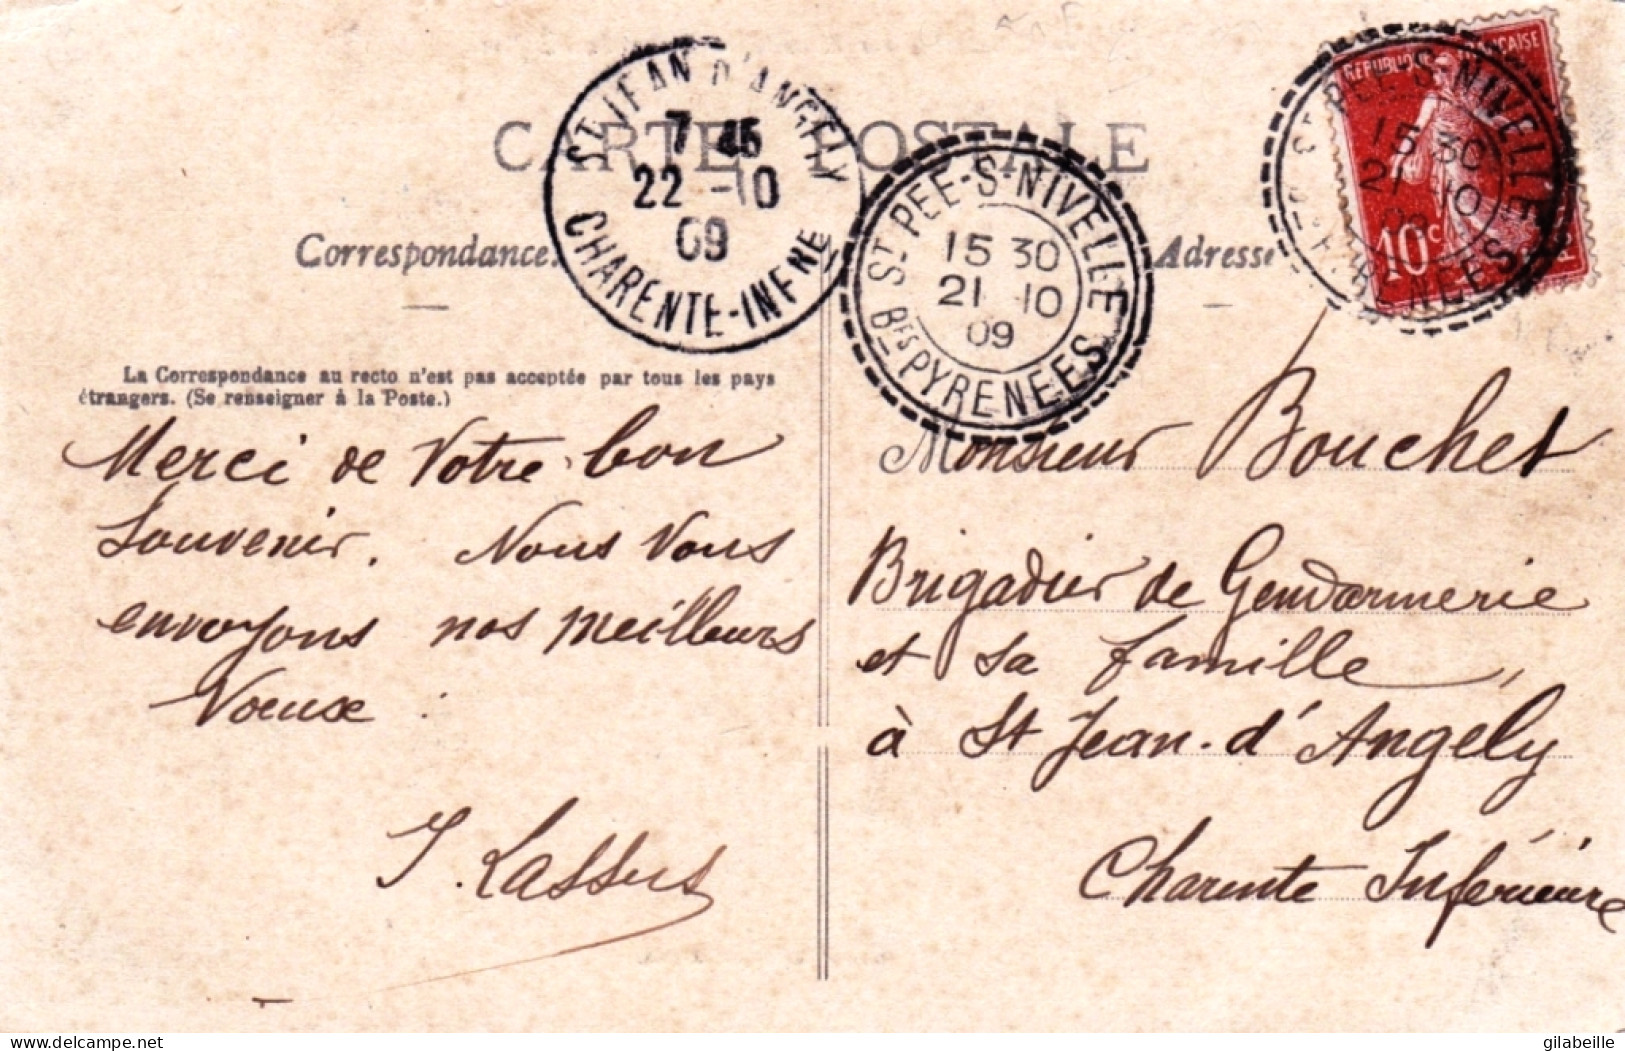 CARTE POSTALE
Correspondance.
Adresse
ST JEAN D'ANGELY
7 45
22 -10
09
CHARENTE-INFRE
ST PEE-S-NIVELLE
15 30
21 10
09
BSES PYRENEES
ST PEE-S-NIVELLE
15 30
21 10
09
PYRENEES
REPUBLIQUE FRANÇAISE
10c
La Correspondance au recto n'est pas acceptée par tous les pays
étrangers. (Se renseigner à la Poste.)
Merci de votre bon
Souvenir. Nous vous
envoyons nos meilleurs
Voeux.
J. Lassus
Monsieur Bouchet
Brigadier de Gendarmerie
et sa famille,
à St Jean-d'Angely
Charente Inférieure
delcampe.net
gilabeille